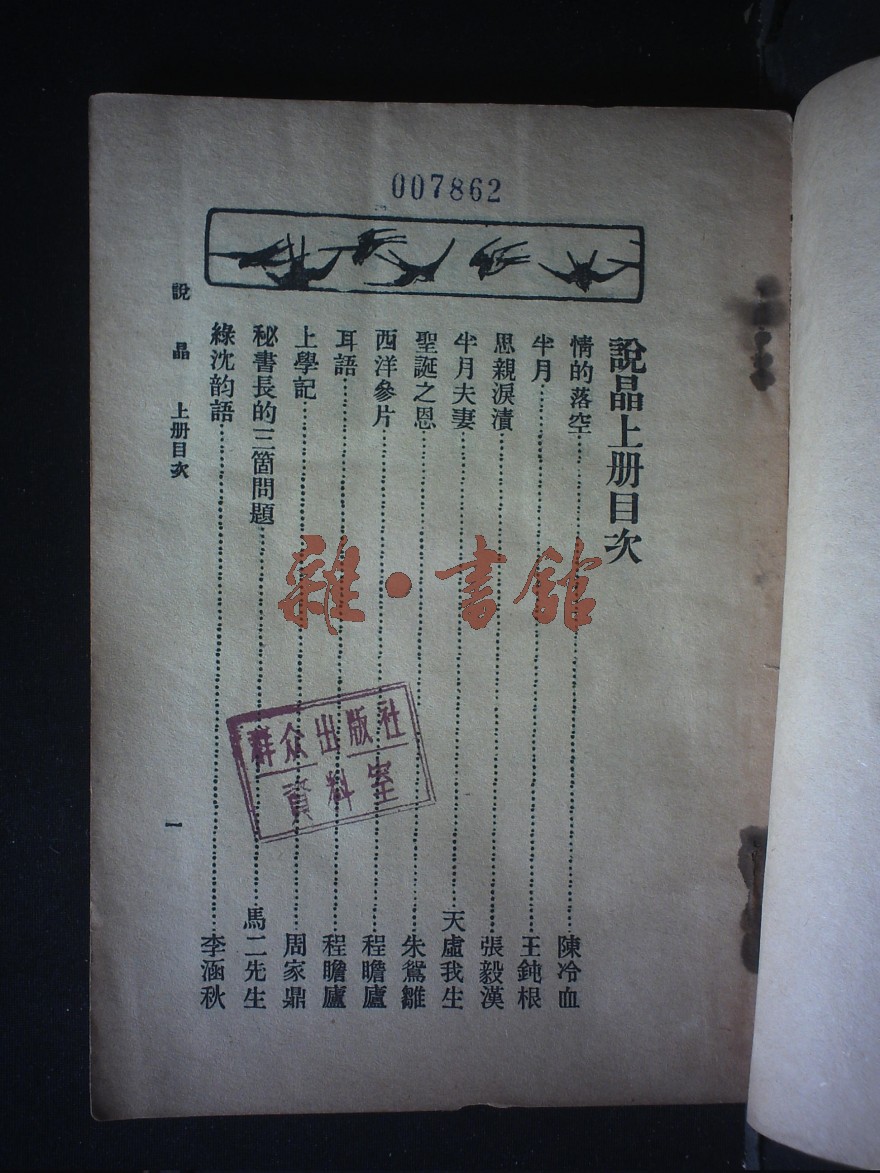 007862
說晶上册目次
情的落空 陳冷血
半月 王鈍根
思親淚漬 張毅漢
半月夫妻 天虛我生
聖誕之恩 朱鴛雛
西洋參片 程瞻廬
耳語 程瞻廬
上學記 周家鼎
秘書長的三箇問題 馬二先生
綠沈韵語 李涵秋
說晶 上册目次 一
雜·書館
群众出版社
資料室